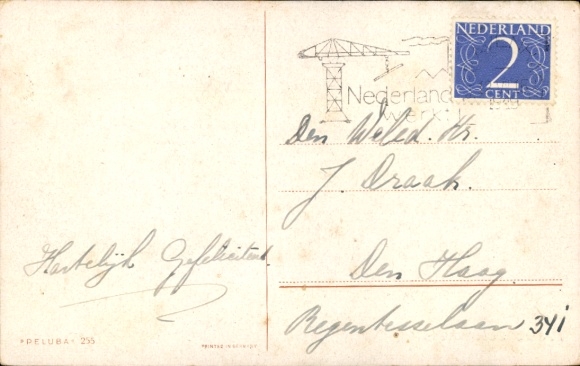 NEDERLAND
2
CENT
Nederland
werkt
Den Weled. Hr.
J. Draak.
Den Haag
Regentesselaan 341
Hartelijk Gefeliciteerd
"PELUBA" 255